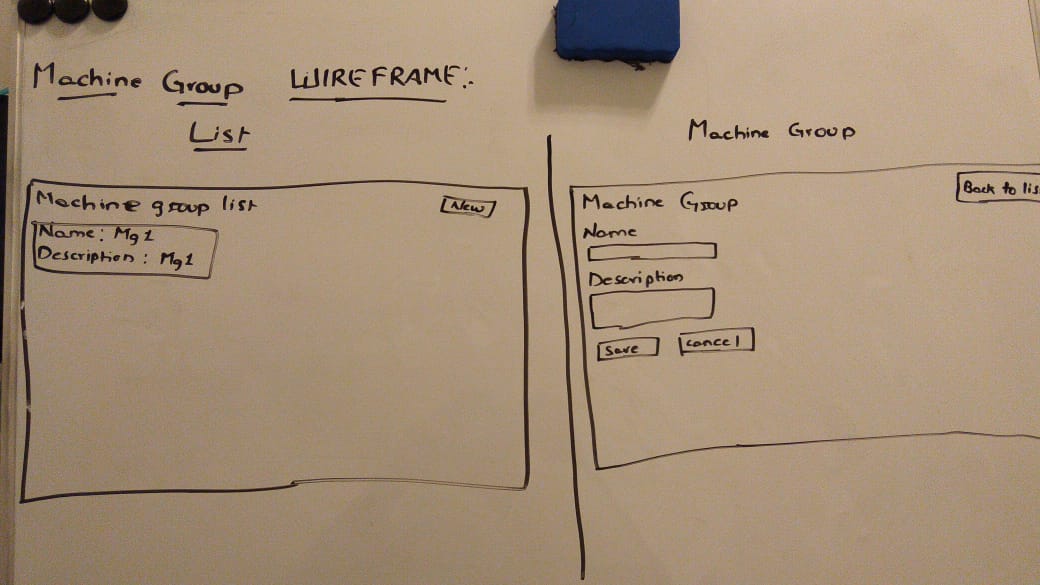 Machine Group WIREFRAME:-
List
Machine group list
New
Name: Mg1
Description: Mg1
Machine Group
Machine Group
Back to lis
Name
Description
Save
Cancel